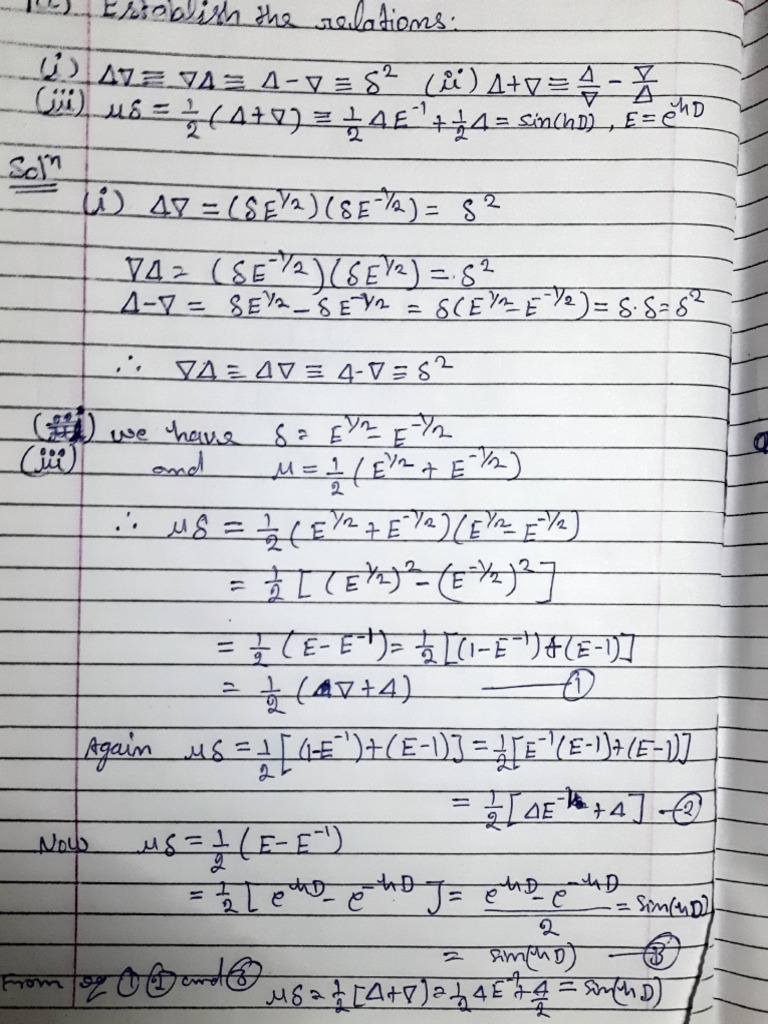 Establish the relations:
(i) Δ∇ ≡ ∇Δ ≡ Δ-∇ ≡ δ² (ii) Δ+∇ ≡ Δ/∇ - ∇/Δ
(iii) μδ = 1/2 (Δ+∇) ≡ 1/2 ΔE⁻¹ + 1/2 Δ = sin(hD), E = e^hD
Solⁿ
(i) Δ∇ = (δE^1/2)(δE^-1/2) = δ²
∇Δ = (δE^-1/2)(δE^1/2) = δ²
Δ-∇ = δE^1/2 - δE^-1/2 = δ(E^1/2 - E^-1/2) = δ·δ = δ²
∴ ∇Δ ≡ Δ∇ ≡ Δ-∇ ≡ δ²
we have δ = E^1/2 - E^-1/2
(iii) and μ = 1/2 (E^1/2 + E^-1/2)
∴ μδ = 1/2 (E^1/2 + E^-1/2)(E^1/2 - E^-1/2)
= 1/2 [(E^1/2)² - (E^-1/2)²]
= 1/2 (E - E⁻¹) = 1/2 [(1-E⁻¹) + (E-1)]
= 1/2 (∇+Δ) — ①
Again μδ = 1/2 [(1-E⁻¹)+(E-1)] = 1/2 [E⁻¹(E-1)+(E-1)]
= 1/2 [ΔE⁻¹ + Δ] - ②
Now μδ = 1/2 (E - E⁻¹)
= 1/2 [e^hD - e^-hD] = (e^hD - e^-hD)/2 = sin(hD)
= sin(hD) — ③
From eq ① ② and ③ μδ = 1/2 [Δ+∇] = 1/2 ΔE⁻¹ + Δ/2 = sin(hD)